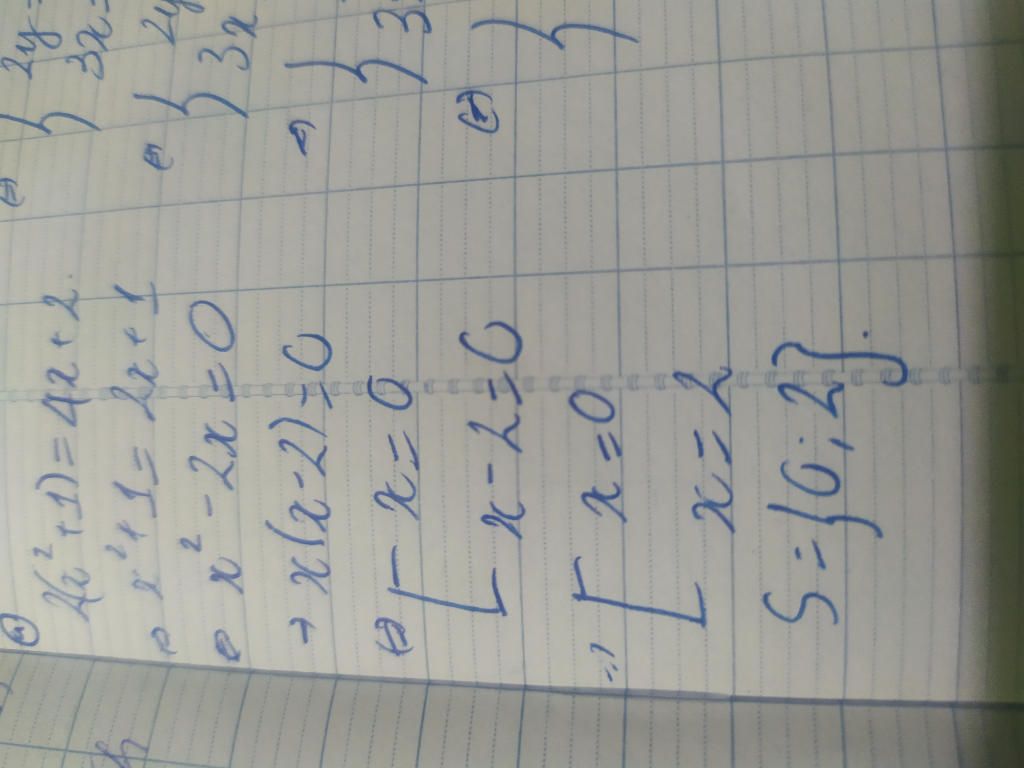 2(x²+1) = 4x + 2.
x²+1 = 2x + 1
x² - 2x = 0
→ x(x-2) = 0
⇔ [ x = 0
[ x - 2 = 0
[ x = 0
[ x = 2
S = {0; 2}.
} 2y =
3x =
} 2y
3x
} 3
⇔ }